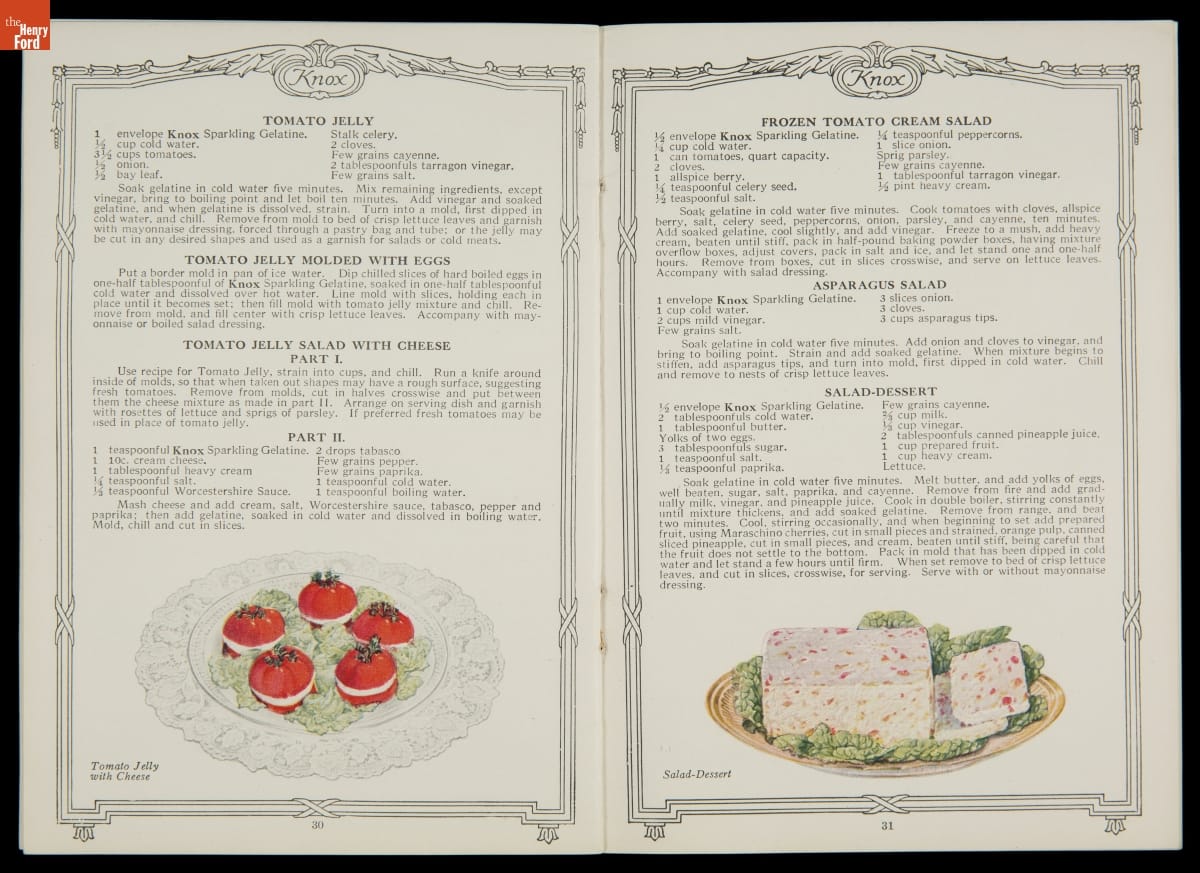 the
Henry
Ford
Knox
TOMATO JELLY
1 envelope Knox Sparkling Gelatine.
½ cup cold water.
3½ cups tomatoes.
½ onion.
½ bay leaf.
Stalk celery.
2 cloves.
Few grains cayenne.
2 tablespoonfuls tarragon vinegar.
Few grains salt.
Soak gelatine in cold water five minutes. Mix remaining ingredients, except
vinegar, bring to boiling point and let boil ten minutes. Add vinegar and soaked
gelatine, and when gelatine is dissolved, strain. Turn into a mold, first dipped in
cold water, and chill. Remove from mold to bed of crisp lettuce leaves and garnish
with mayonnaise dressing, forced through a pastry bag and tube; or the jelly may
be cut in any desired shapes and used as a garnish for salads or cold meats.
TOMATO JELLY MOLDED WITH EGGS
Put a border mold in pan of ice water. Dip chilled slices of hard boiled eggs in
one-half tablespoonful of Knox Sparkling Gelatine, soaked in one-half tablespoonful
cold water and dissolved over hot water. Line mold with slices, holding each in
place until it becomes set; then fill mold with tomato jelly mixture and chill. Re-
move from mold, and fill center with crisp lettuce leaves. Accompany with may-
onnaise or boiled salad dressing.
TOMATO JELLY SALAD WITH CHEESE
PART I.
Use recipe for Tomato Jelly, strain into cups, and chill. Run a knife around
inside of molds, so that when taken out shapes may have a rough surface, suggesting
fresh tomatoes. Remove from molds, cut in halves crosswise and put between
them the cheese mixture as made in part II. Arrange on serving dish and garnish
with rosettes of lettuce and sprigs of parsley. If preferred fresh tomatoes may be
used in place of tomato jelly.
PART II.
1 teaspoonful Knox Sparkling Gelatine.
1 10c. cream cheese.
1 tablespoonful heavy cream
¼ teaspoonful salt.
½ teaspoonful Worcestershire Sauce.
2 drops tabasco
Few grains pepper.
Few grains paprika.
1 teaspoonful cold water.
1 teaspoonful boiling water.
Mash cheese and add cream, salt, Worcestershire sauce, tabasco, pepper and
paprika; then add gelatine, soaked in cold water and dissolved in boiling water.
Mold, chill and cut in slices.
Tomato Jelly
with Cheese
30
Knox
FROZEN TOMATO CREAM SALAD
½ envelope Knox Sparkling Gelatine.
¼ cup cold water.
1 can tomatoes, quart capacity.
2 cloves.
1 allspice berry.
¼ teaspoonful celery seed.
½ teaspoonful salt.
¼ teaspoonful peppercorns.
1 slice onion.
Sprig parsley.
Few grains cayenne.
1 tablespoonful tarragon vinegar.
½ pint heavy cream.
Soak gelatine in cold water five minutes. Cook tomatoes with cloves, allspice
berry, salt, celery seed, peppercorns, onion, parsley, and cayenne, ten minutes.
Add soaked gelatine, cool slightly, and add vinegar. Freeze to a mush, add heavy
cream, beaten until stiff, pack in half-pound baking powder boxes, having mixture
overflow boxes, adjust covers, pack in salt and ice, and let stand one and one-half
hours. Remove from boxes, cut in slices crosswise, and serve on lettuce leaves.
Accompany with salad dressing.
ASPARAGUS SALAD
1 envelope Knox Sparkling Gelatine.
1 cup cold water.
2 cups mild vinegar.
Few grains salt.
3 slices onion.
3 cloves.
3 cups asparagus tips.
Soak gelatine in cold water five minutes. Add onion and cloves to vinegar, and
bring to boiling point. Strain and add soaked gelatine. When mixture begins to
stiffen, add asparagus tips, and turn into mold, first dipped in cold water. Chill
and remove to nests of crisp lettuce leaves.
SALAD-DESSERT
½ envelope Knox Sparkling Gelatine.
2 tablespoonfuls cold water.
1 tablespoonful butter.
Yolks of two eggs.
3 tablespoonfuls sugar.
1 teaspoonful salt.
½ teaspoonful paprika.
Few grains cayenne.
⅔ cup milk.
⅓ cup vinegar.
2 tablespoonfuls canned pineapple juice.
1 cup prepared fruit.
1 cup heavy cream.
Lettuce.
Soak gelatine in cold water five minutes. Melt butter, and add yolks of eggs,
well beaten, sugar, salt, paprika, and cayenne. Remove from fire and add grad-
ually milk, vinegar, and pineapple juice. Cook in double boiler, stirring constantly
until mixture thickens, and add soaked gelatine. Remove from range, and beat
two minutes. Cool, stirring occasionally, and when beginning to set add prepared
fruit, using Maraschino cherries, cut in small pieces and strained, orange pulp, canned
sliced pineapple, cut in small pieces, and cream, beaten until stiff, being careful that
the fruit does not settle to the bottom. Pack in mold that has been dipped in cold
water and let stand a few hours until firm. When set remove to bed of crisp lettuce
leaves, and cut in slices, crosswise, for serving. Serve with or without mayonnaise
dressing.
Salad-Dessert
31